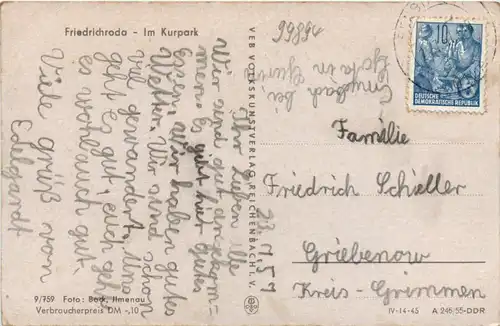 Friedrichroda - Im Kurpark
99894
bei
in
10
DEUTSCHE
DEMOKRATISCHE REPUBLIK
VEB VOLKSKUNSTVERLAG REICHENBACH I. V.
Ihr Lieben alle
Wir sind gut angekom-
men. Es gibt hier gutes
Essen, wir haben gutes
Wetter. Wir sind schon
viel gewandert. Uns
geht es gut, euch geht
es wohl auch gut.
Viele grüß von
Edelgardt
Familie
Friedrich Schieller
Griebenow
Kreis-Grimmen
9/759 Foto: Back, Ilmenau
Verbraucherpreis DM -,10
IV-14-45 A 246/55-DDR